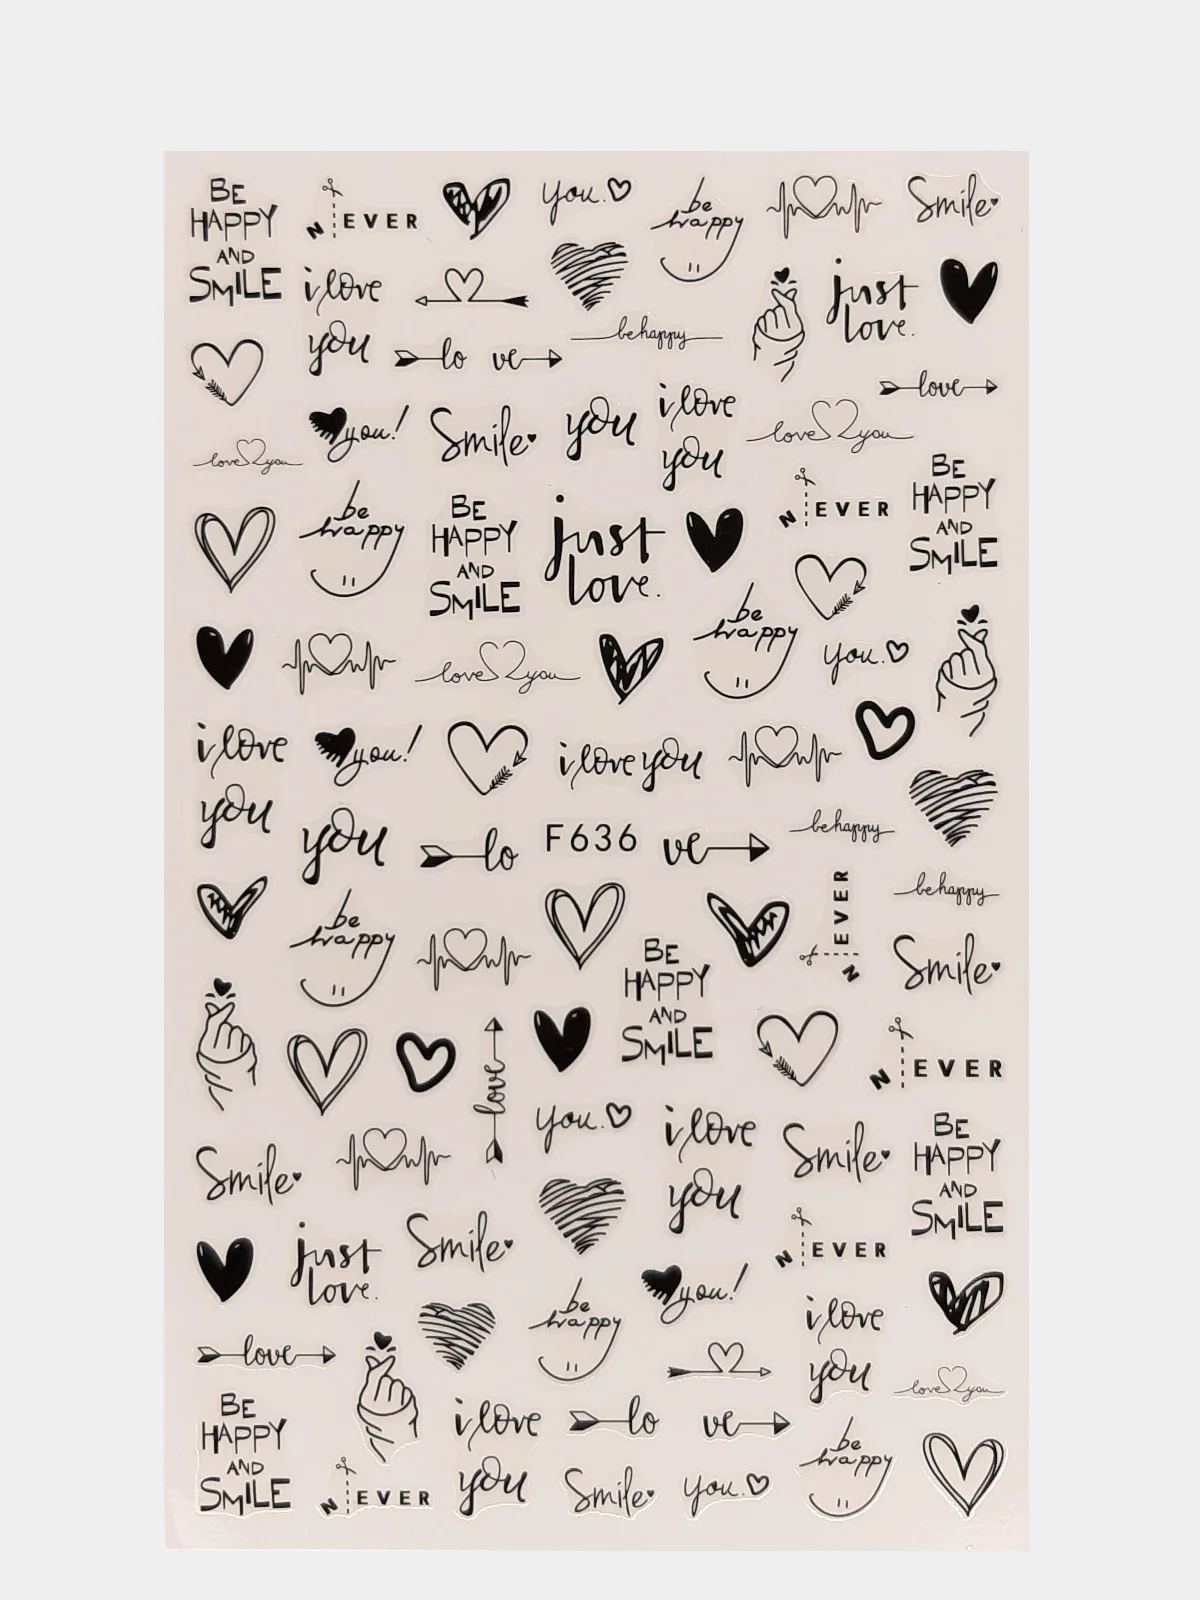 BE
HAPPY
AND
SMILE
N EVER
you.
be
happy
Smile
i love
you
just
love.
be happy
lo ve
love
you!
Smile
you
i love
you
love you
love you
be
happy
BE
HAPPY
AND
SMILE
just
love.
N EVER
BE
HAPPY
AND
SMILE
be
happy
you.
love you
i love
you
you!
i love you
you
lo F636 ve
be happy
be happy
be
happy
N EVER
Smile
BE
HAPPY
AND
SMILE
love
N EVER
you.
i love
you
Smile
BE
HAPPY
AND
SMILE
Smile
just
love.
Smile
N EVER
you!
be
happy
i love
you
love
love you
BE
HAPPY
AND
SMILE
N EVER
i love
you
lo ve
Smile
you.
be
happy